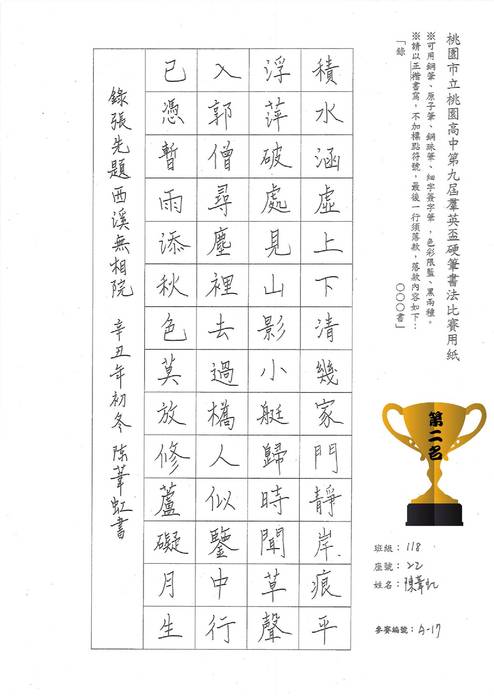 桃園市立桃園高中第九屆羣英盃硬筆書法比賽用紙
※可用鋼筆、原子筆、鋼珠筆、細字簽字筆,色彩限藍、黑兩種。
※請以正楷書寫,不加標點符號,最後一行須落款,落款內容如下:
「錄 ○○○書」
積水涵虛上下清幾家門靜岸痕平
浮萍破處見山影小艇歸時聞草聲
入郭僧尋塵裡去過橋人似鑒中行
已憑暫雨添秋色莫放修蘆礙月生
錄張先題西溪無相院 辛丑年初冬 陳葦虹書
第二名
班級:118
座號:22
姓名:陳葦虹
參賽編號:A-17